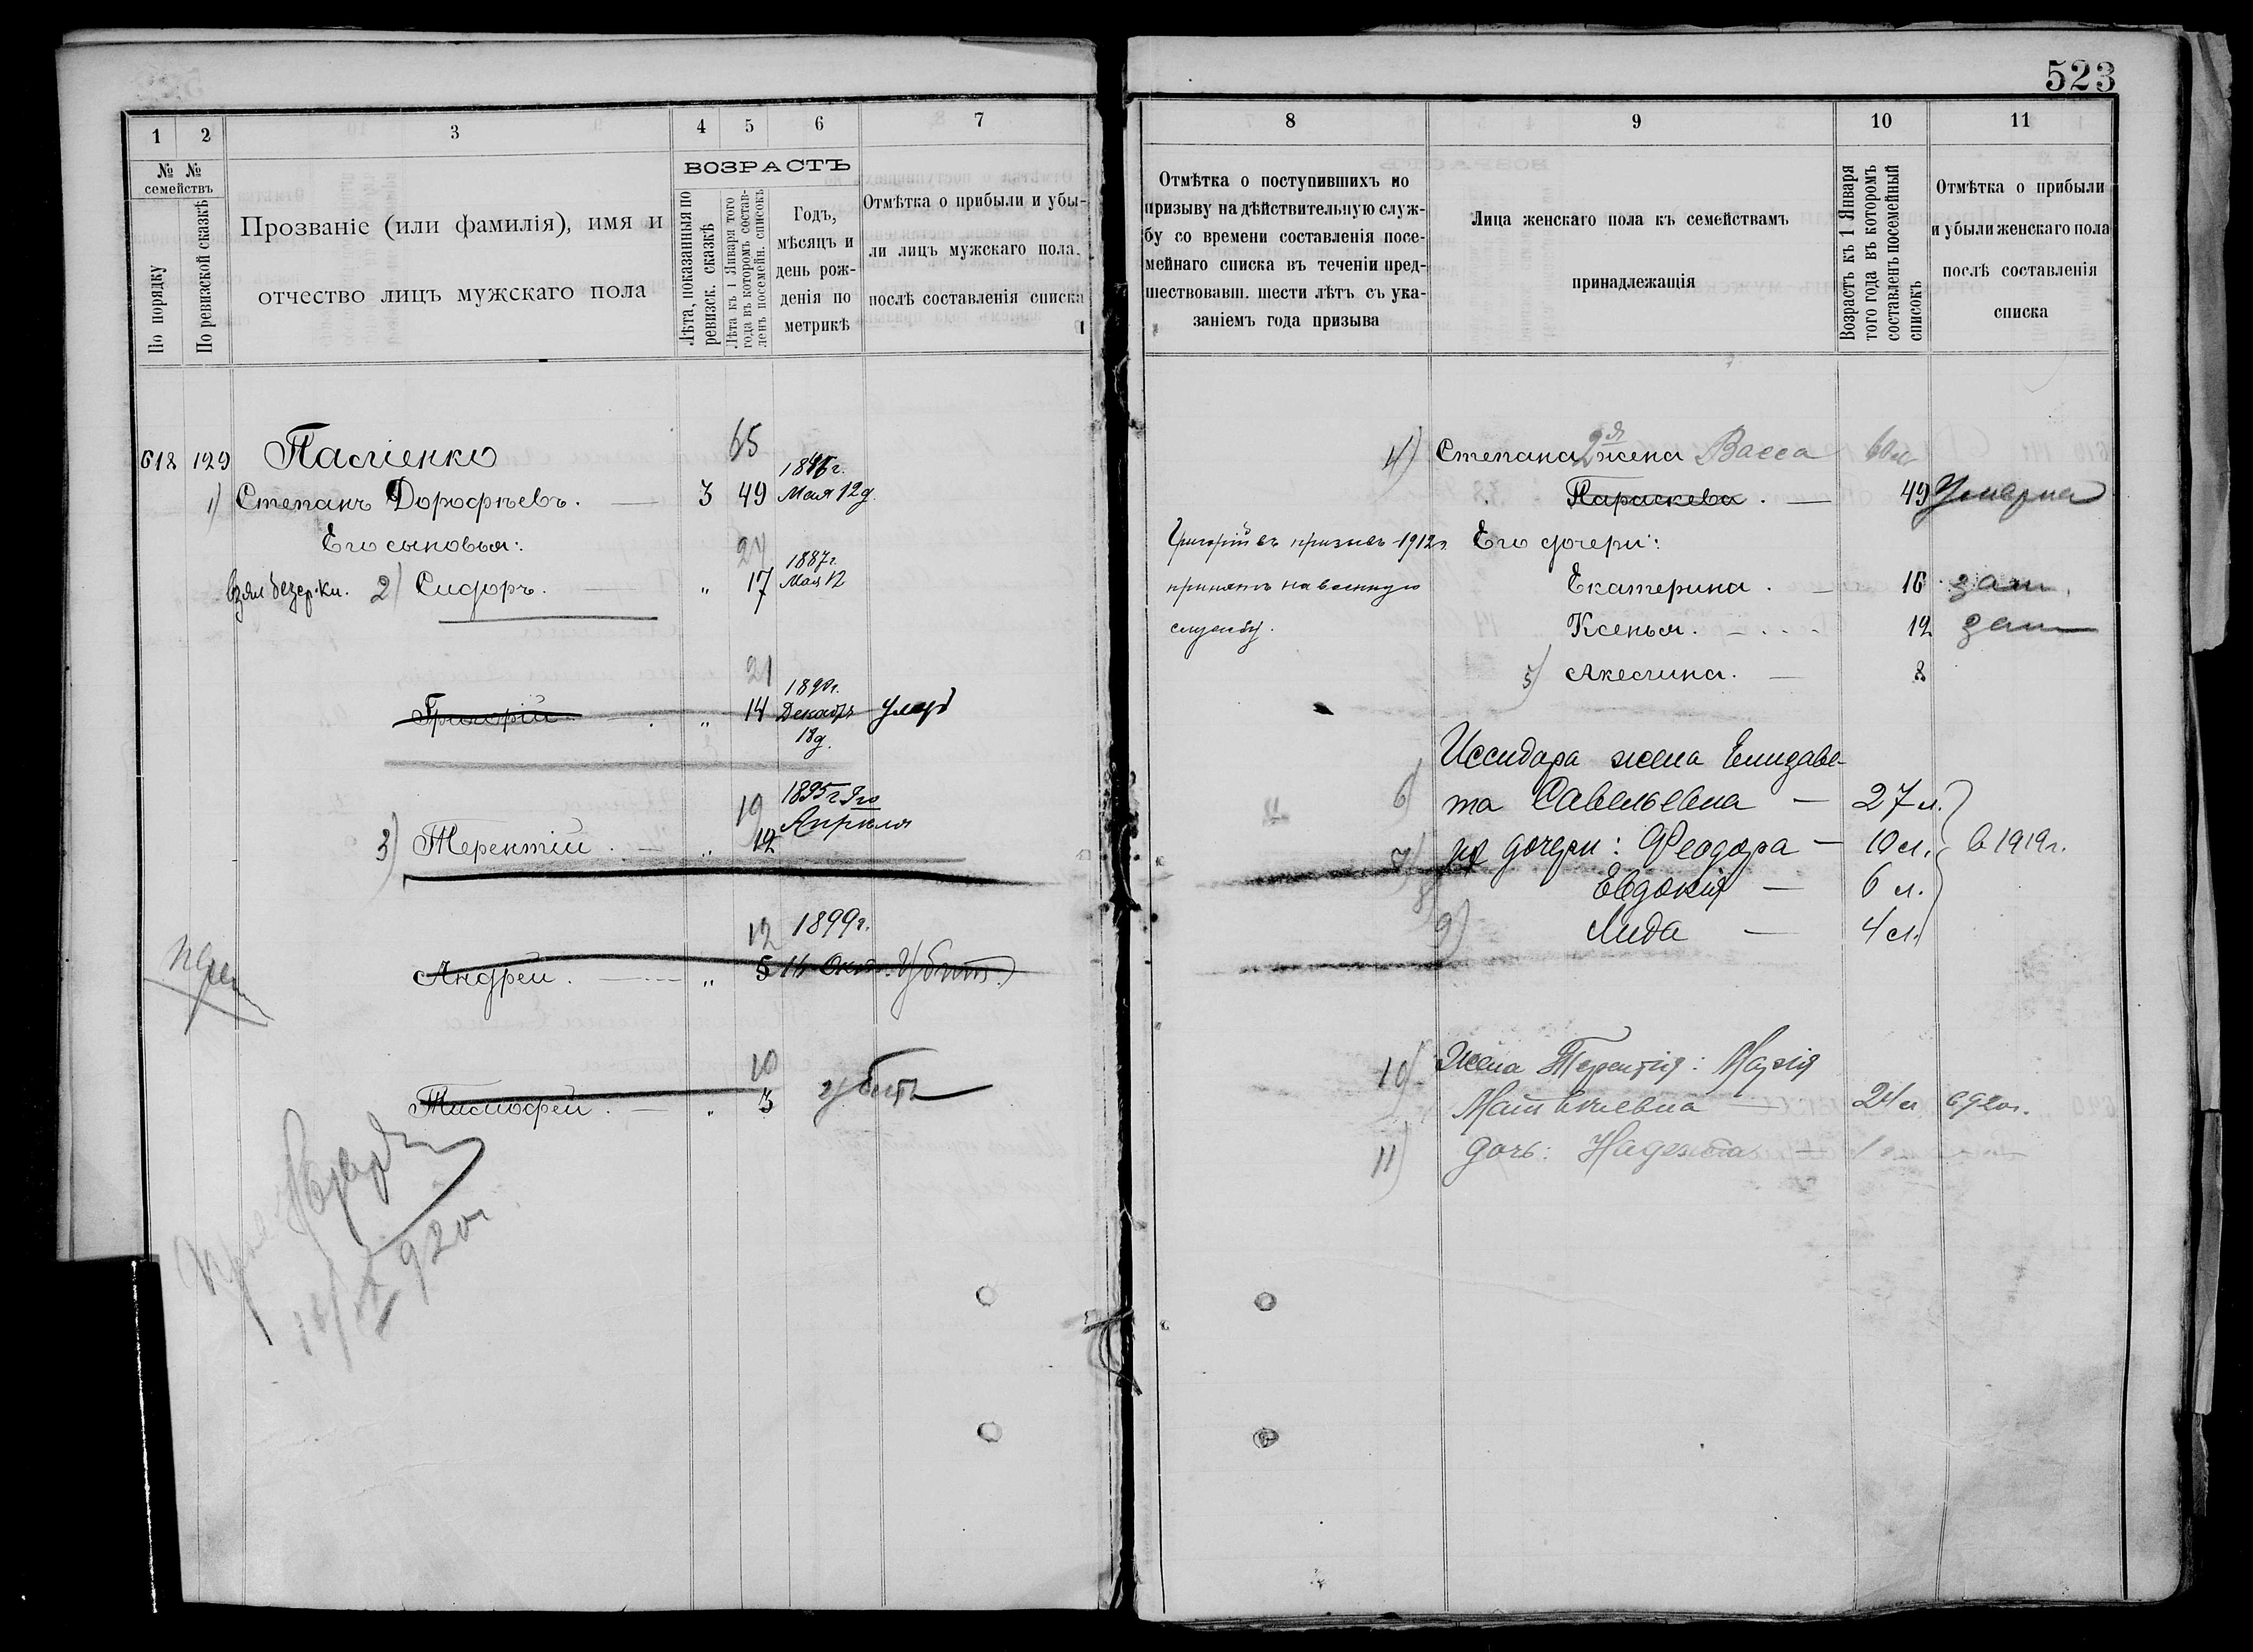 523
1 2 3 4 5 6 7
№ № семействъ
По порядку
По ревизской сказкѣ
Прозваніе (или фамилія), имя и
отчество лицъ мужскаго пола
ВОЗРАСТЪ
Лѣта, показанныя по
ревизск. сказкѣ
Лѣта къ 1 Января того
года въ которомъ состав-
ленъ посемейн. списокъ
Годъ,
мѣсяцъ и
день рож-
денія по
метрикѣ
Отмѣтка о прибыли и убы-
ли лицъ мужскаго пола,
послѣ составленія списка
618 129
65
1) Степанъ Дорофѣевъ. 3 49 Мая 12д.
Его сыновья:
24 1887г.
2) Сидоръ. " 17 Мая 12
21 1890г.
Григорій " 14 Декабрь умер
18д.
19 1895г.
Апрѣля
3) Терентій. " 12
12 1899г.
Андрей. " 5 14 Окт. Убит
10
Тимофей. " 3 убитъ
920г.
8 9 10 11
Отмѣтка о поступившихъ по
призыву на дѣйствительную служ-
бу со времени составленія посе-
мейнаго списка въ теченіи пред-
шествовавш. шести лѣтъ съ ука-
заніемъ года призыва
Лица женскаго пола къ семействамъ
принадлежащія
Возрастъ къ 1 Января
того года въ которомъ
составленъ посемейный
списокъ
Отмѣтка о прибыли
и убыли женскаго пола
послѣ составленія
списка
4) Степана 2я жена Васса 60л
Параскева. 49 Умерла
Григорій въ призывъ 1912г. Его дочери:
принятъ на военную Екатерина. 16 зам.
службу. Ксенья. 12 зам
5) Акелина. 8
Иссидара жена Елизаве-
6) та Савельевна 27 л.
7) дочери: Феодора 10 л. в 1919г.
8) Евдокія 6 л.
9) Лида 4 л.
10) Жена Терентія: Марія
Матвеевна 24 л в 920г.
11) дочь: Надежда 1